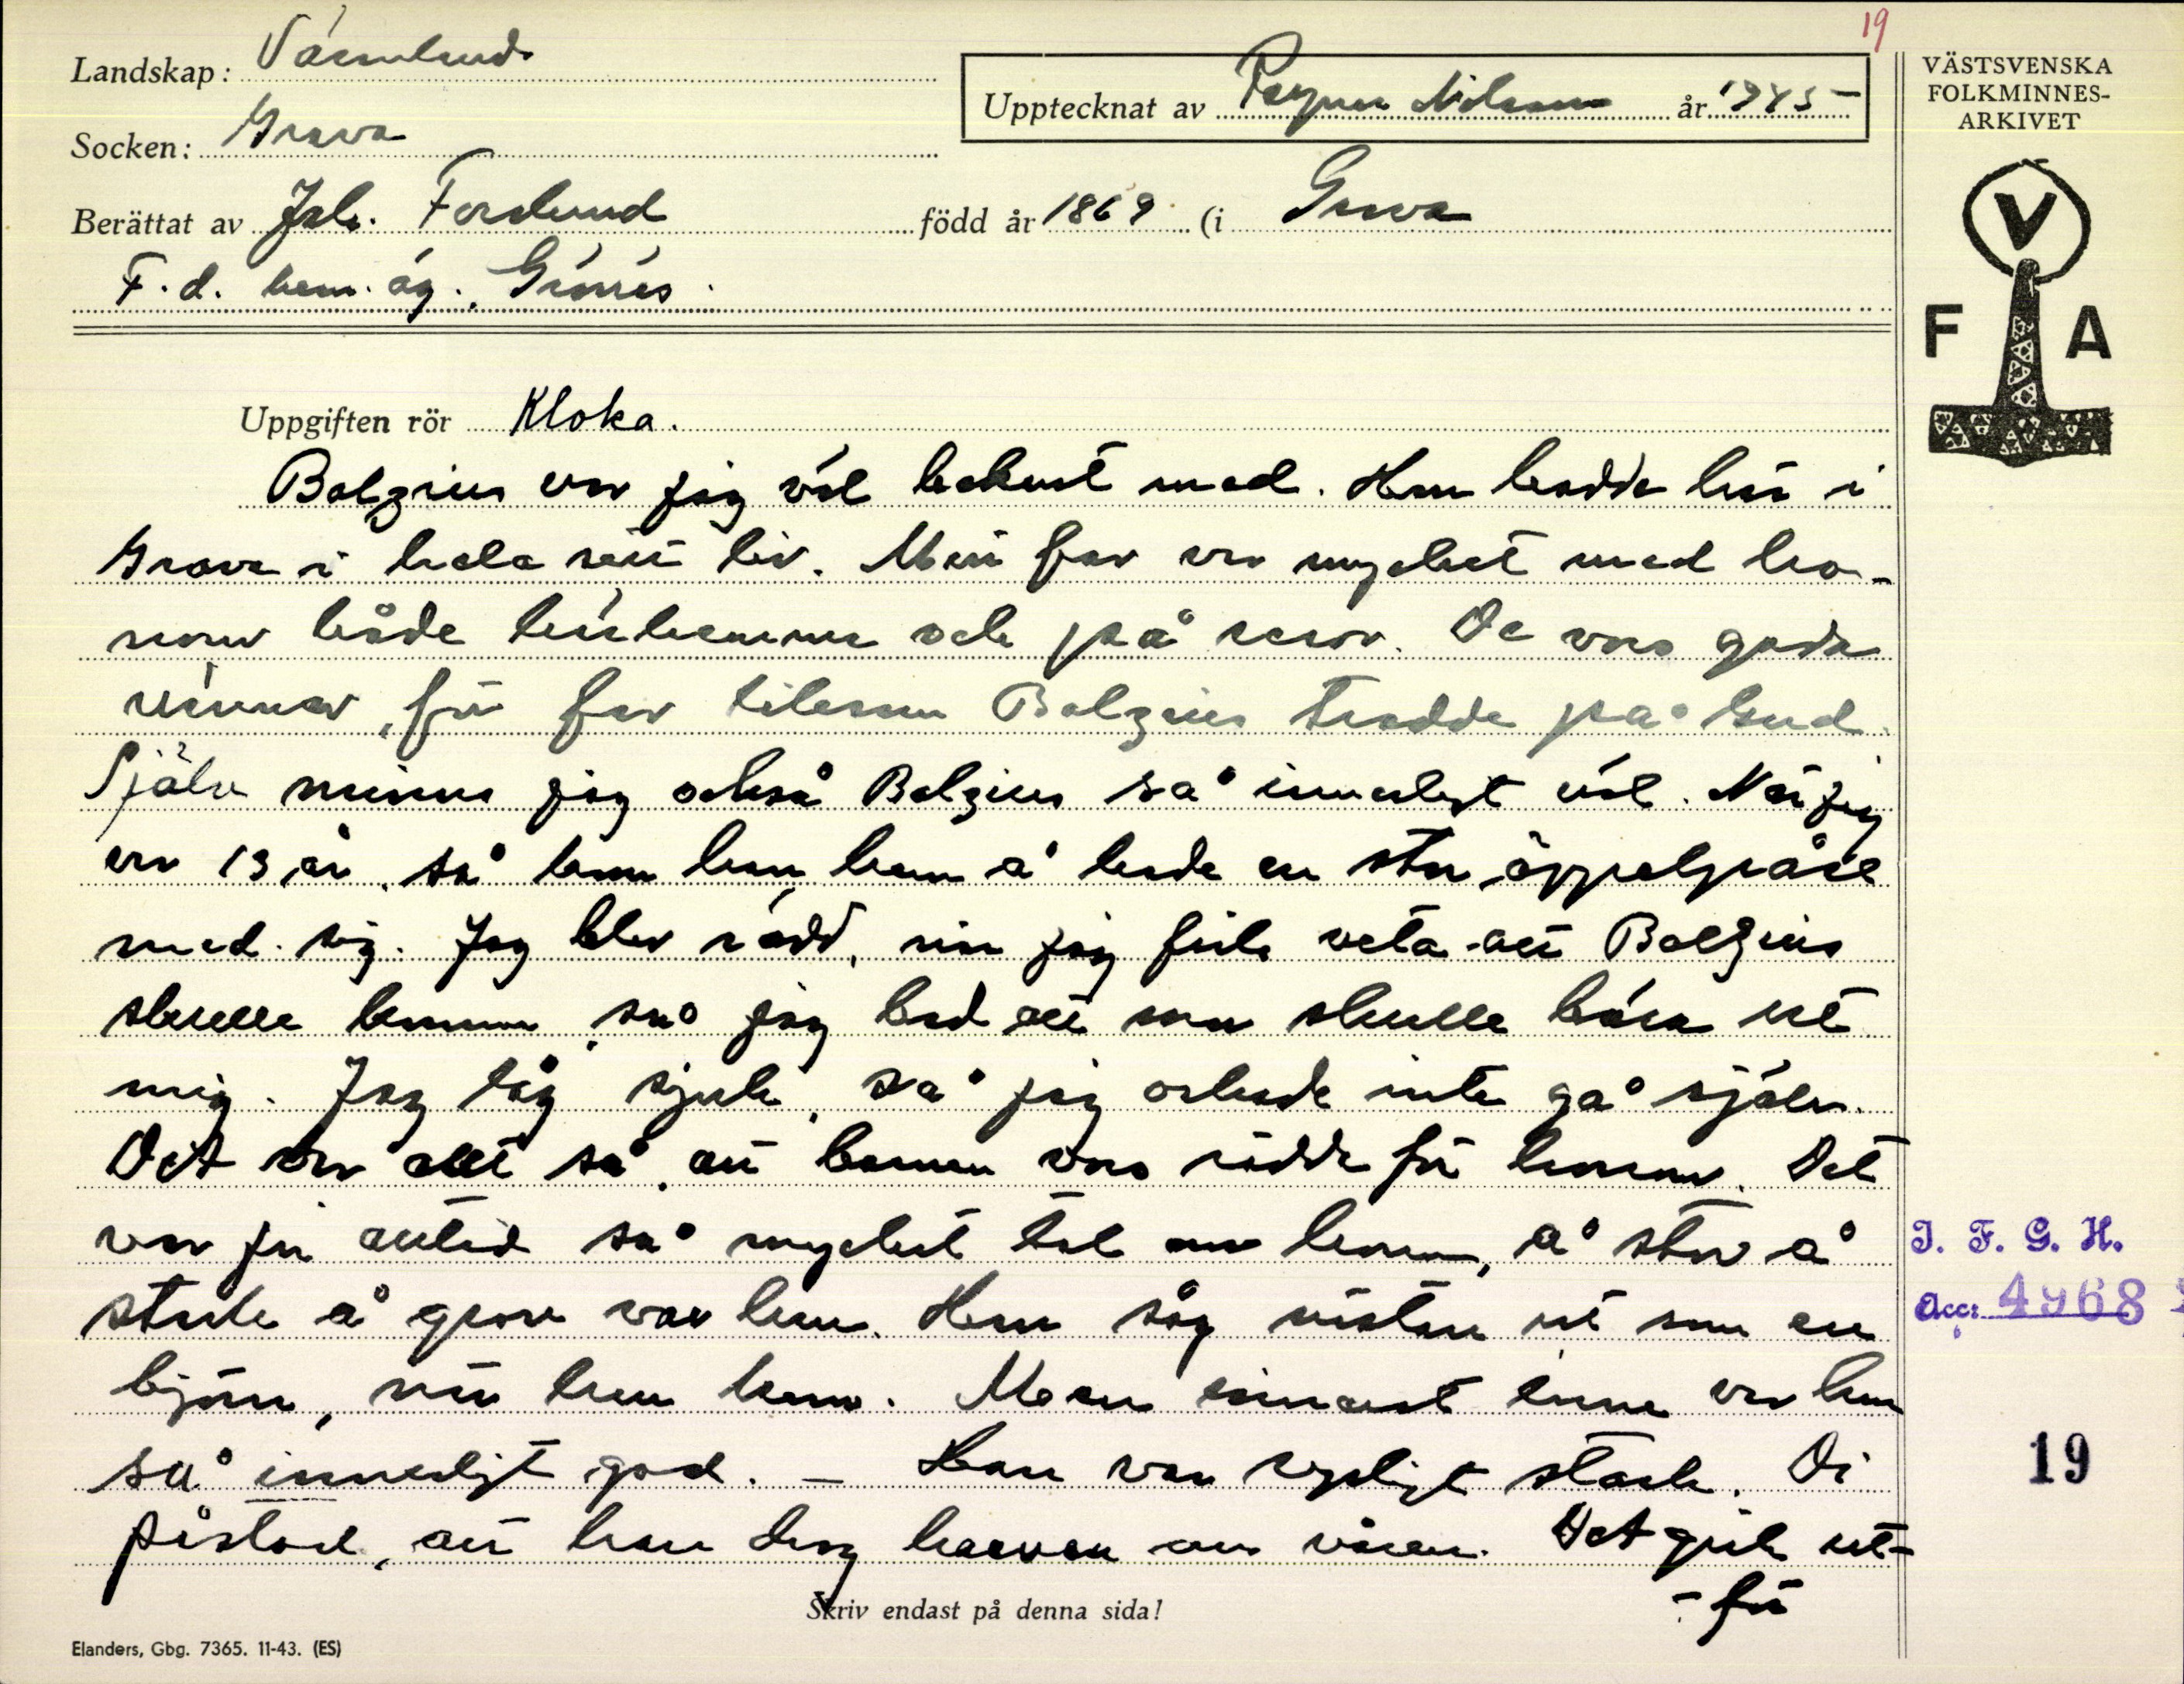 19
Landskap: Värmland
Upptecknat av Ragnar Nilsson år 1945
VÄSTSVENSKA
FOLKMINNES-
ARKIVET
Socken: Grava
Berättat av Joh. Forslund född år 1869 (i Grava
F. d. hem. äg.
V
F A
Uppgiften rör Kloka.
Bolgius var jag väl bekant med. Han bodde här i
Grava i hela sitt liv. Min far var mycket med ho-
nom både härhemma och på resor. De voro goda
vänner, för far liksom Bolgius trodde på Gud.
Själv minns jag också Bolgius så innerligt väl. När jag
var 13 år, så kom han hem å hade en stor äppelpåse
med sig. Jag blev rädd, när jag fick veta att Bolgius
skulle komma, så jag bad att man skulle bära ut
mig. Jag låg sjuk, så jag orkade inte gå själv.
Det var allt så, att barnen voro rädda för honom. Det
var ju alltid så mycket tal om honom, å stor å
stark å grov var han. Han såg nästan ut som en
björn, när han kom. Men innerst inne var han
så innerligt god. – Han var rysligt stark. Di
påstod, att han drog harven om våren. Det gick ut-
- för
I. F. G. H.
Acc: 4968
19
Skriv endast på denna sida!
Elanders, Gbg. 7365. 11-43. (ES)